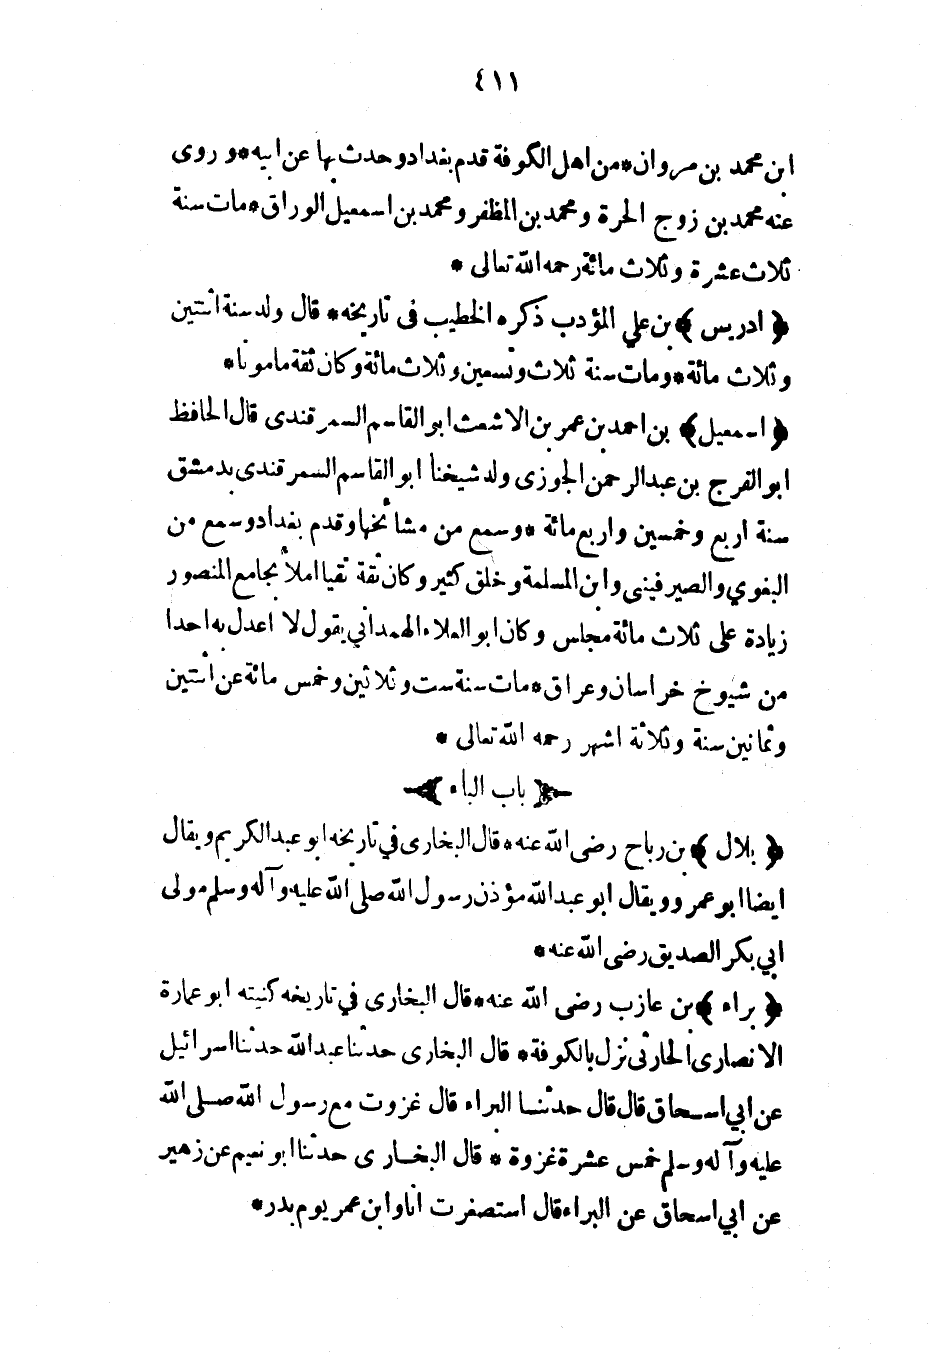 ٤١١
ابن محمد بن مروان*من اهل الكوفة قدم بغداد وحدث بها عن ابيه*و روى
عنه محمد بن زوج الحرة و محمد بن المظفر و محمد بن اسمعيل الوراق*مات سنة
ثلاث عشرة و ثلاث مائة رحمه الله تعالى *
﴿ ادريس ﴾ بن علي المؤدب ذكره الخطيب فى تاريخه* قال ولد سنة اثنتين
و ثلاث مائة*ومات سنة ثلاث و تسعين و ثلاث مائة و كان ثقة مامونا*
﴿ اسمعيل ﴾ بن احمد بن عمر بن الاشعث ابو القاسم السمر قندى قال الحافظ
ابو الفرج بن عبد الرحمن الجوزى ولد شيخنا ابو القاسم السمر قندى بدمشق
سنة اربع وخمسين واربع مائة *وسمع من مشائخها وقدم بغداد وسمع من
البغوي والصير فينى وابن المسلمة وخلق كثير وكان ثقة تقيا املأ بجامع المنصور
زيادة على ثلاث مائة مجلس وكان ابو العلاء الهمداني يقول لا اعدل به احدا
من شيوخ خراسان وعراق*مات سنة ست و ثلاثين وخمس مائة عن اثنتين
وثمانين سنة وثلاثة اشهر رحمه الله تعالى *
﴿ باب الباء ﴾
﴿ بلال ﴾ بن رباح رضى الله عنه*قال البخارى في تاريخه ابو عبد الكريم ويقال
ايضا ابو عمر وويقال ابو عبد الله مؤذن رسول الله صلى الله عليه وآله وسلم مولى
ابي بكر الصديق رضى الله عنه*
﴿ براء ﴾ بن عازب رضى الله عنه*قال البخارى في تاريخه كنيته ابو عمارة
الانصارى الحارثى نزل بالكوفة* قال البخارى حدثنا عبد الله حدثنا اسرائيل
عن ابي اسحاق قال قال حدثنا البراء قال غزوت مع رسول الله صلى الله
عليه وآله وسلم خمس عشرة غزوة * قال البخارى حدثنا ابو نعيم عن زهير
عن ابي اسحاق عن البراء قال استصغرت انا وابن عمر يوم بدر*